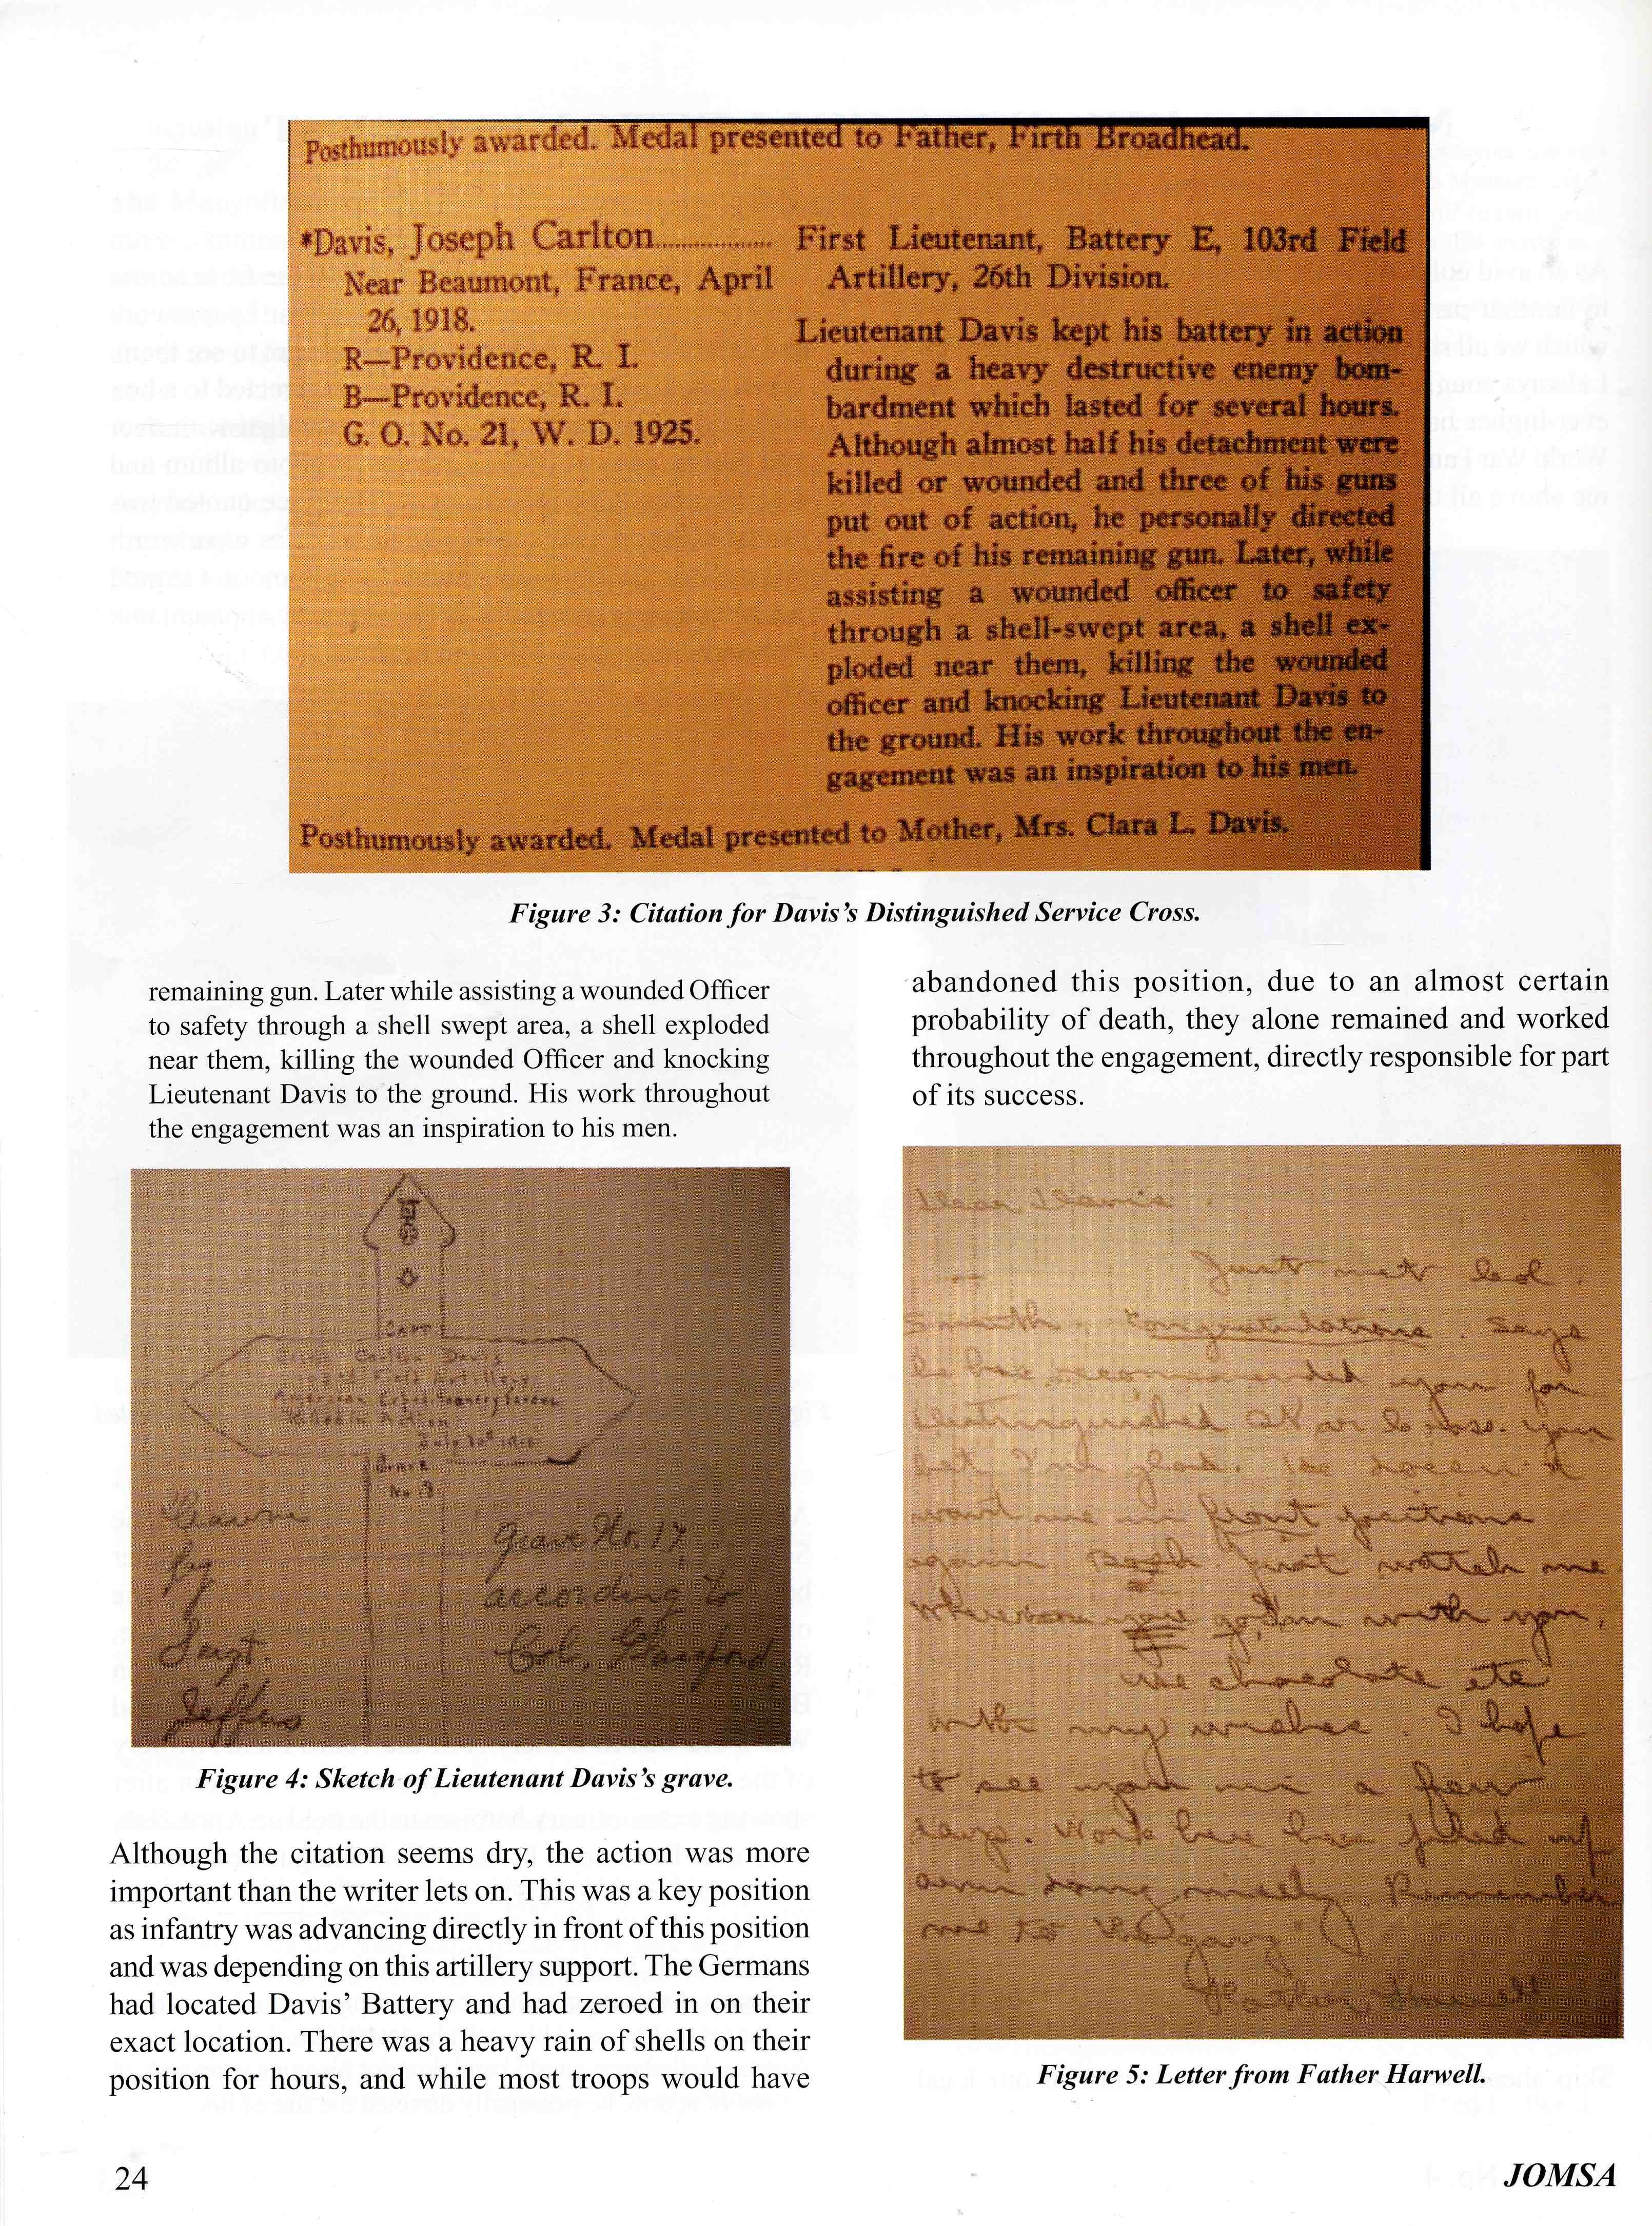 Posthumously awarded. Medal presented to Father, Firth Broadhead.
*Davis, Joseph Carlton...................
Near Beaumont, France, April
26, 1918.
R—Providence, R. I.
B—Providence, R. I.
G. O. No. 21, W. D. 1925.
First Lieutenant, Battery E, 103rd Field
Artillery, 26th Division.
Lieutenant Davis kept his battery in action
during a heavy destructive enemy bom-
bardment which lasted for several hours.
Although almost half his detachment were
killed or wounded and three of his guns
put out of action, he personally directed
the fire of his remaining gun. Later, while
assisting a wounded officer to safety
through a shell-swept area, a shell ex-
ploded near them, killing the wounded
officer and knocking Lieutenant Davis to
the ground. His work throughout the en-
gagement was an inspiration to his men.
Posthumously awarded. Medal presented to Mother, Mrs. Clara L. Davis.
Figure 3: Citation for Davis's Distinguished Service Cross.
remaining gun. Later while assisting a wounded Officer
to safety through a shell swept area, a shell exploded
near them, killing the wounded Officer and knocking
Lieutenant Davis to the ground. His work throughout
the engagement was an inspiration to his men.
CAPT.
Joseph Carlton Davis
103rd Field Artillery
American Expeditionery Forces
Killed in Action
July 20th 1918
Grave
No 18
Drawn
by
Sergt.
Jeffers
Grave No. 17,
according to
Col. Glassford
Figure 4: Sketch of Lieutenant Davis's grave.
Although the citation seems dry, the action was more
important than the writer lets on. This was a key position
as infantry was advancing directly in front of this position
and was depending on this artillery support. The Germans
had located Davis' Battery and had zeroed in on their
exact location. There was a heavy rain of shells on their
position for hours, and while most troops would have
abandoned this position, due to an almost certain
probability of death, they alone remained and worked
throughout the engagement, directly responsible for part
of its success.
Dear Davis
Just met Col.
Smith. Congratulations. Says
he has recommended you for
Distinguished War Cross. You
bet I'm glad. He doesn't
want me in front positions
again Bosh. Just watch me
Wherever you go I'm with you,
Use chocolate etc
with my wishes. I hope
to see you in a few
days. Work here has piled up
am doing nicely. Remember
me to the "gang"
Father Harwell
Figure 5: Letter from Father Harwell.
24
JOMSA